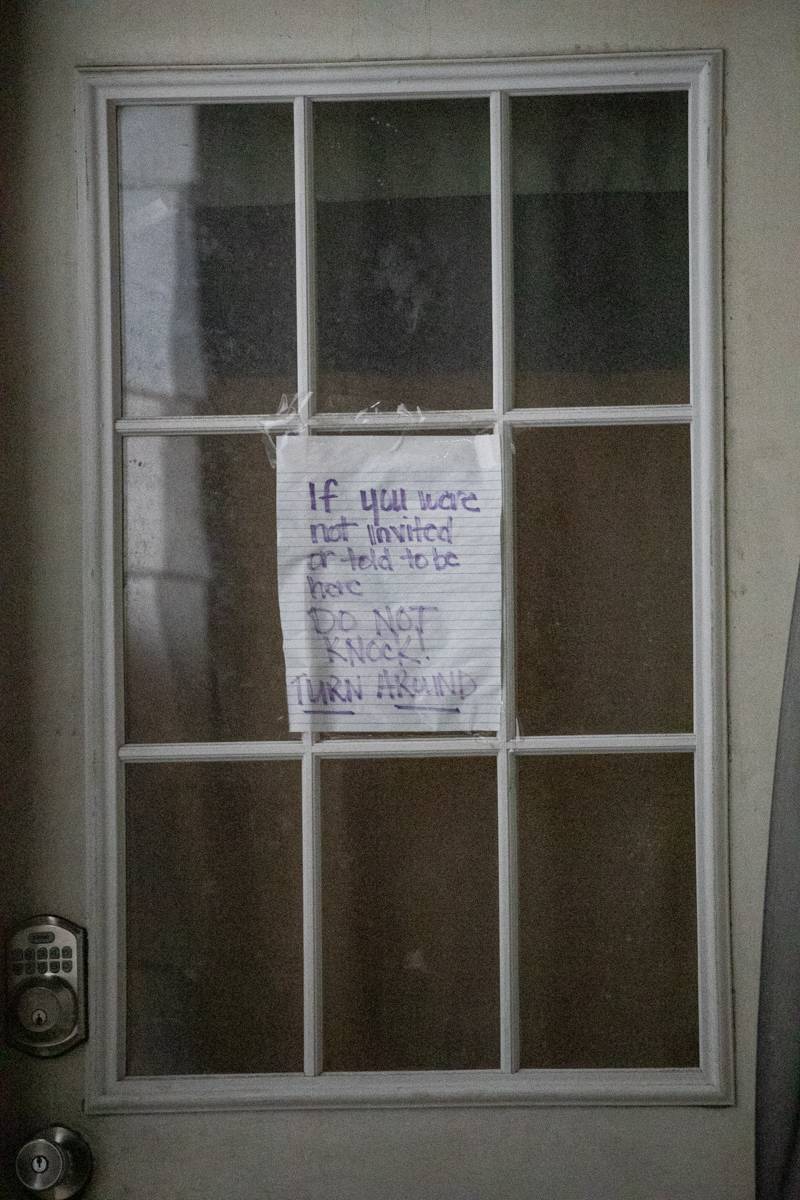 If you were
not invited
or told to be
here
DO NOT
KNOCK!
TURN AROUND